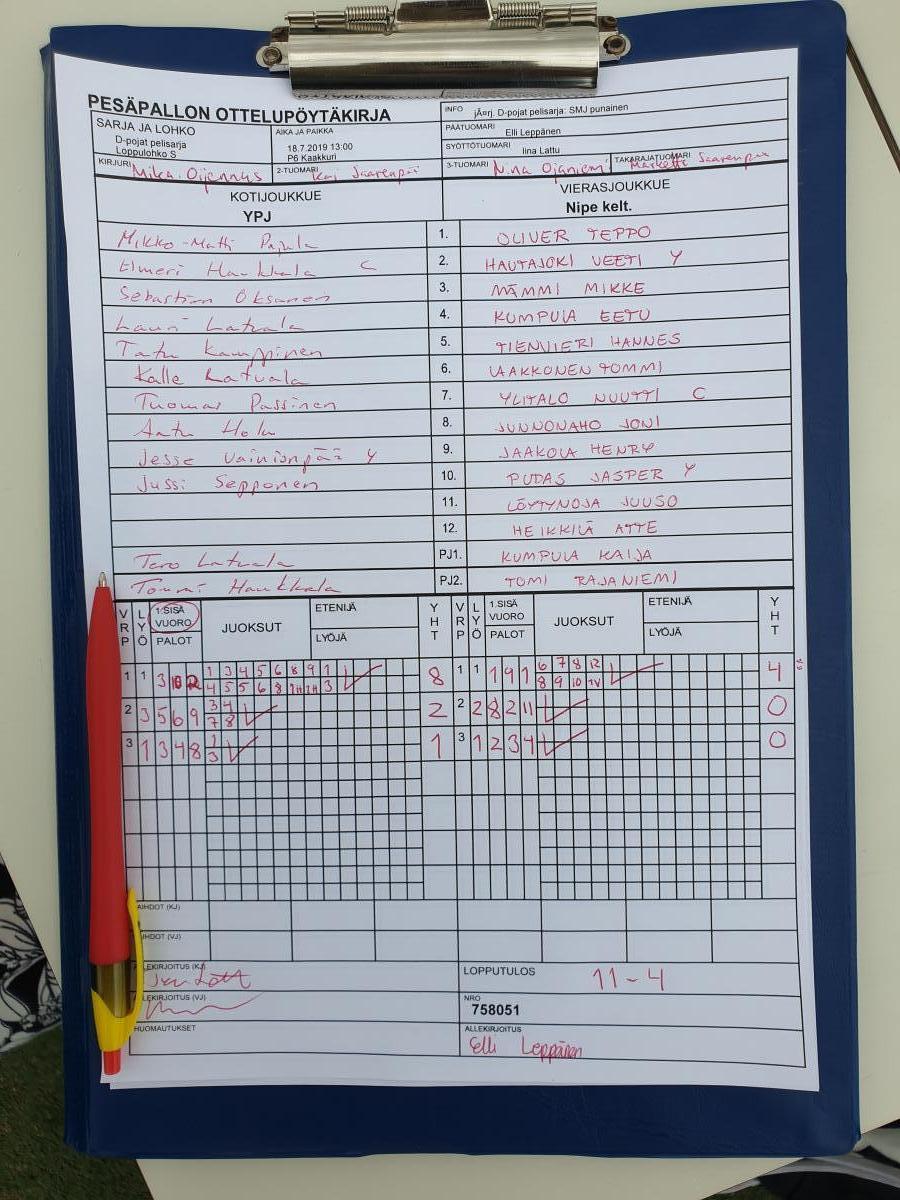 PESÄPALLON OTTELUPÖYTÄKIRJA
SARJA JA LOHKO
D-pojat pelisarja
Loppulohko S
AIKA JA PAIKKA
18.7.2019 13:00
P6 Kaakkuri
INFO jÃ¤rj. D-pojat pelisarja: SMJ punainen
PÄÄTUOMARI
Elli Leppänen
SYÖTTÖTUOMARI Iina Lattu
KIRJURI Mika Oijennus
2-TUOMARI Kai Saarenpää
3-TUOMARI Nina Ojaniemi
TAKARAJATUOMARI Marketti Saarenpää
KOTIJOUKKUE
YPJ
VIERASJOUKKUE
Nipe kelt.
Mikko-Matti Pajula 1. OLIVER TEPPO
Elmeri Haukkala C 2. HAUTAJOKI VEETI Y
Sebastian Oksanen 3. MÄMMI MIKKE
Lauri Latvala 4. KUMPULA EETU
Tatu Kamppinen 5. TIENVIERI HANNES
Kalle Latvala 6. VAAKKONEN TOMMI
Tuomas Passinen 7. YLITALO NUUTTI C
Antu Hola 8. JUNNONAHO JONI
Jesse Vainionpää Y 9. JAAKOLA HENRY
Jussi Sepponen 10. PUDAS JASPER Y
11. LÖYTYNOJA JUUSO
12. HEIKKILÄ ATTE
Tero Latvala PJ1. KUMPULA KAIJA
Tommi Haukkala PJ2. TOMI RAJANIEMI
VRP LYÖ 1.SISÄ VUORO PALOT JUOKSUT ETENIJÄ LYÖJÄ YHT VRP LYÖ 1.SISÄ VUORO PALOT JUOKSUT ETENIJÄ LYÖJÄ YHT
1 3 4 5 6 8 9 1 6 7 8 12
1 1 3 10 8 1 1 1 9 1 4
4 5 5 6 8 3 8 9 10
3 4
2 3 5 6 9 2 2 2 8 2 11 0
7 8
1
3 1 3 4 8 1 3 1 2 3 4 0
3
AIHDOT (KJ)
IHDOT (VJ)
LEKIRJOITUS (KJ)
LOPPUTULOS 11-4
LEKIRJOITUS (VJ)
NRO
758051
HUOMAUTUKSET
ALLEKIRJOITUS
Elli Leppänen